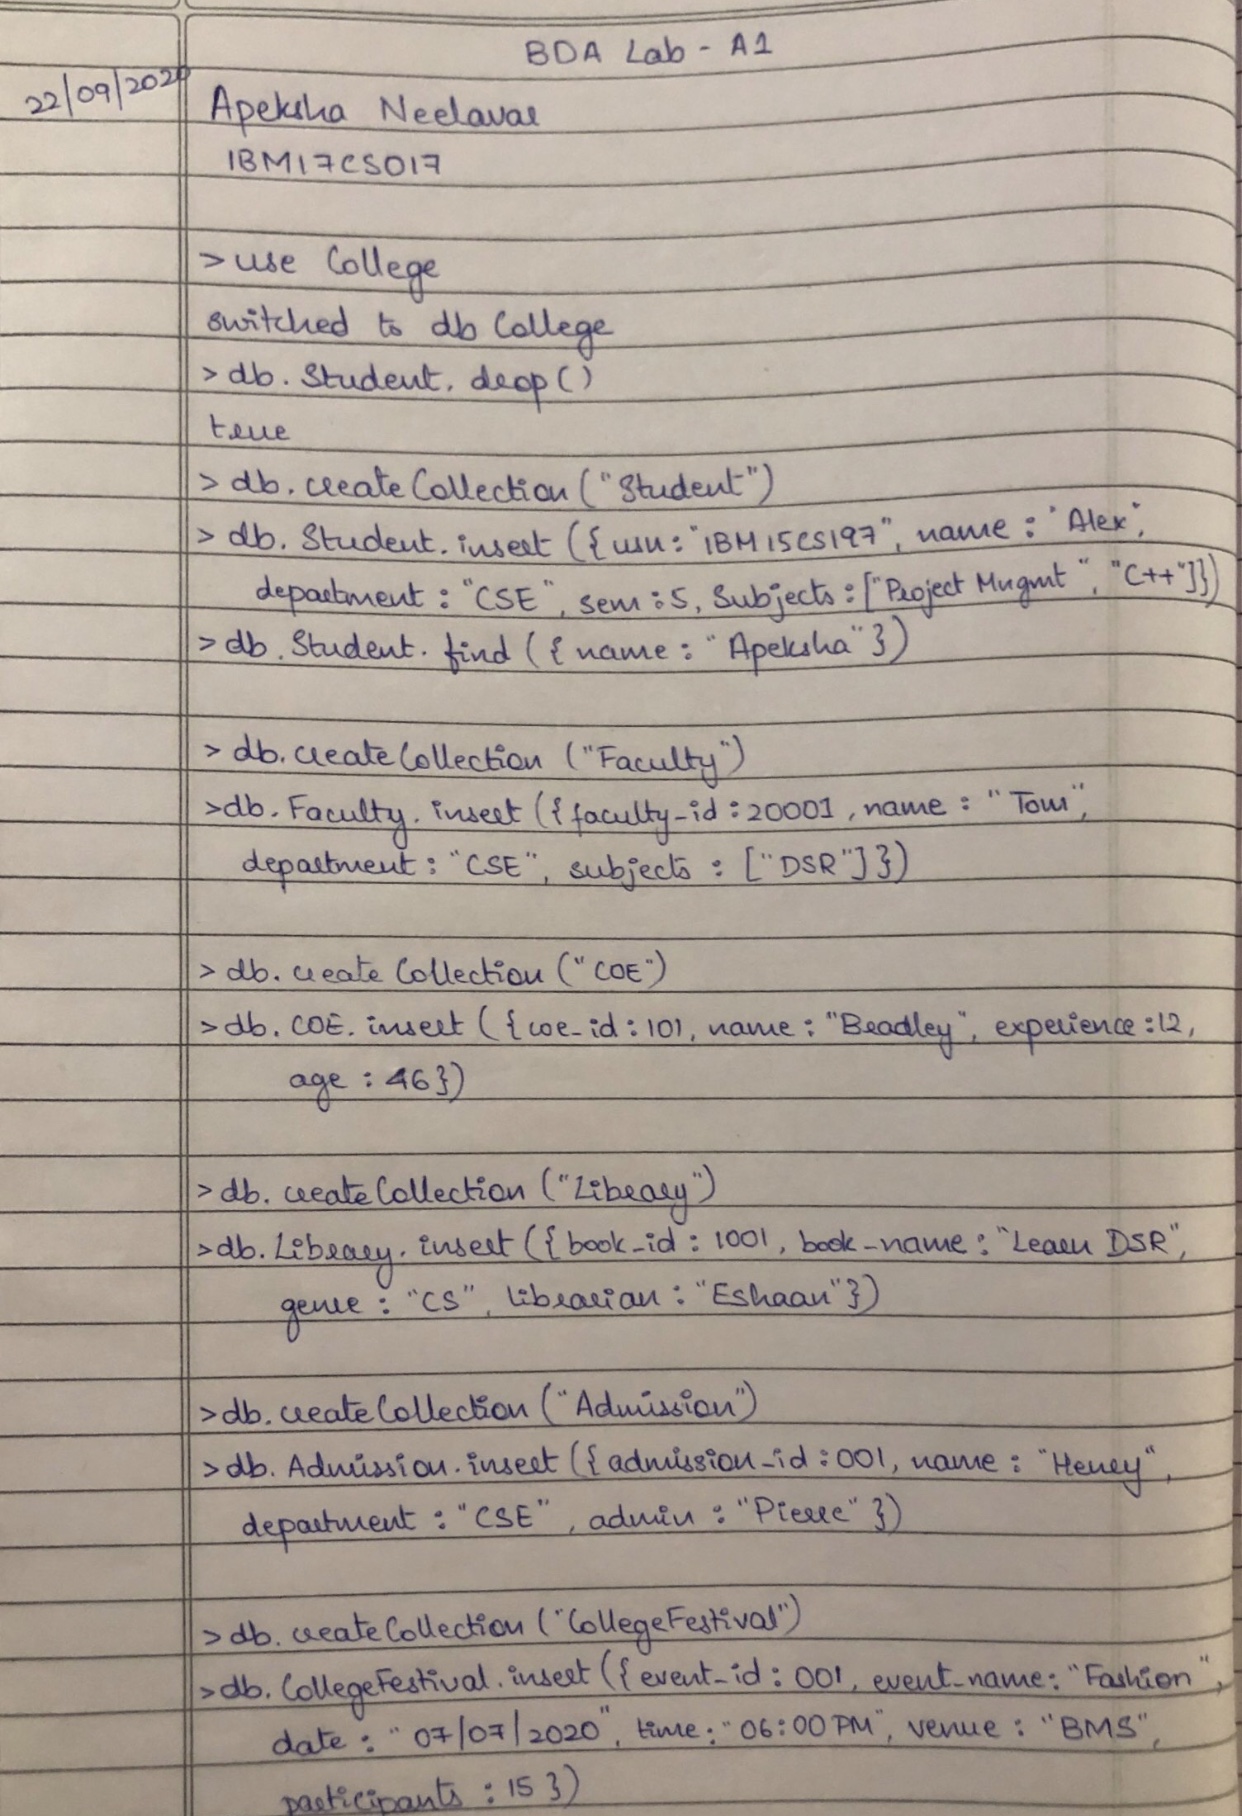 BDA Lab - A1
22/09/2020
Apeksha Neelavar
1BM17CS017
> use College
switched to db College
> db.Student.drop()
true
> db.createCollection("Student")
> db.Student.insert({usn:"1BM15CS197", name:"Alex",
department:"CSE", sem:5, Subjects:["Project Mngmt", "C++"]})
> db.Student.find({name:"Apeksha"})
> db.createCollection("Faculty")
> db.Faculty.insert({faculty_id:20001, name:"Tom",
department:"CSE", subjects:["DSR"]})
> db.createCollection("COE")
> db.COE.insert({coe_id:101, name:"Bradley", experience:12,
age:46})
> db.createCollection("Library")
> db.Library.insert({book_id:1001, book_name:"Learn DSR",
genre:"CS", librarian:"Eshaan"})
> db.createCollection("Admission")
> db.Admission.insert({admission_id:001, name:"Henry",
department:"CSE", admin:"Pierre"})
> db.createCollection("CollegeFestival")
> db.CollegeFestival.insert({event_id:001, event_name:"Fashion",
date:"07/07/2020", time:"06:00PM", venue:"BMS",
participants:15})